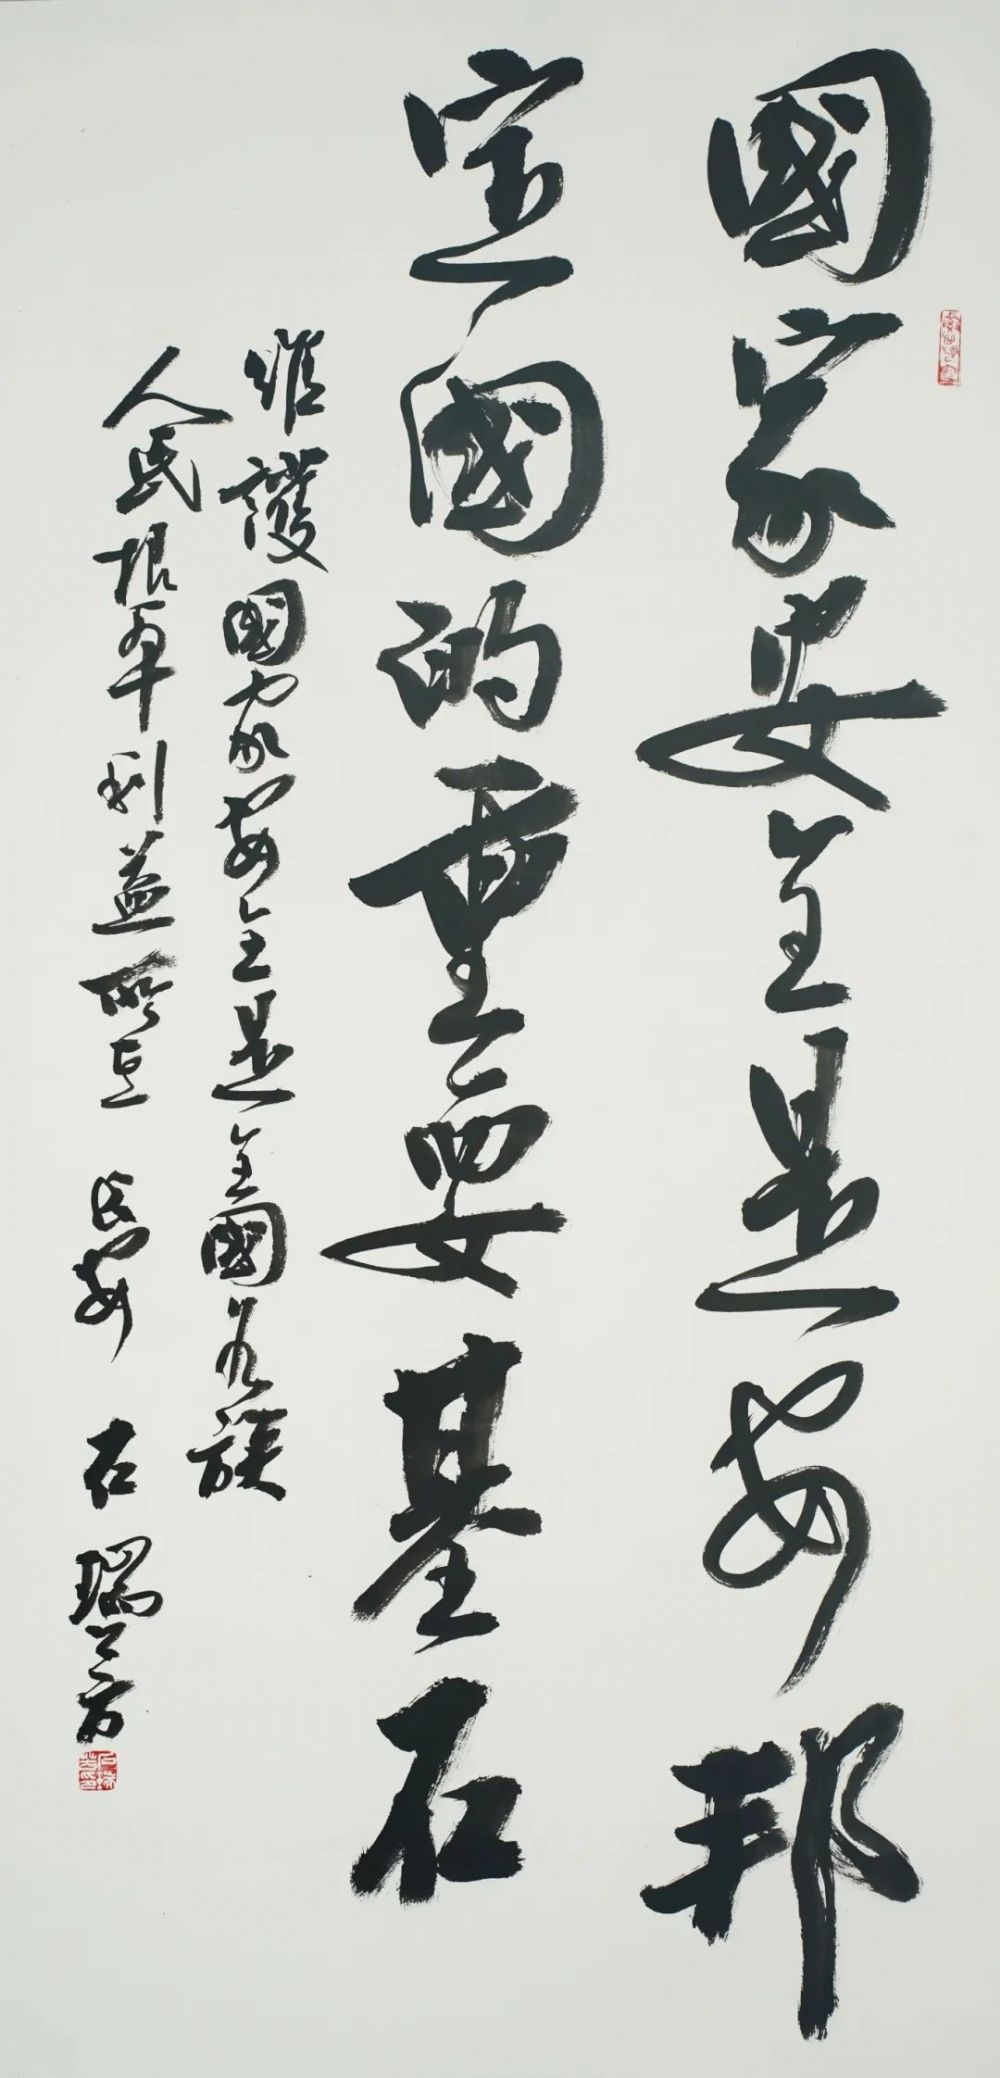 國家安全是安邦
定國的重要基石
維護國家安全是全國各族
人民根本利益所在 長安 石瑞芳